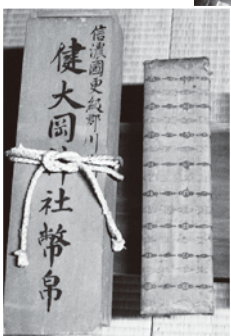 信濃國更級郡川
健大岡 社幣帛